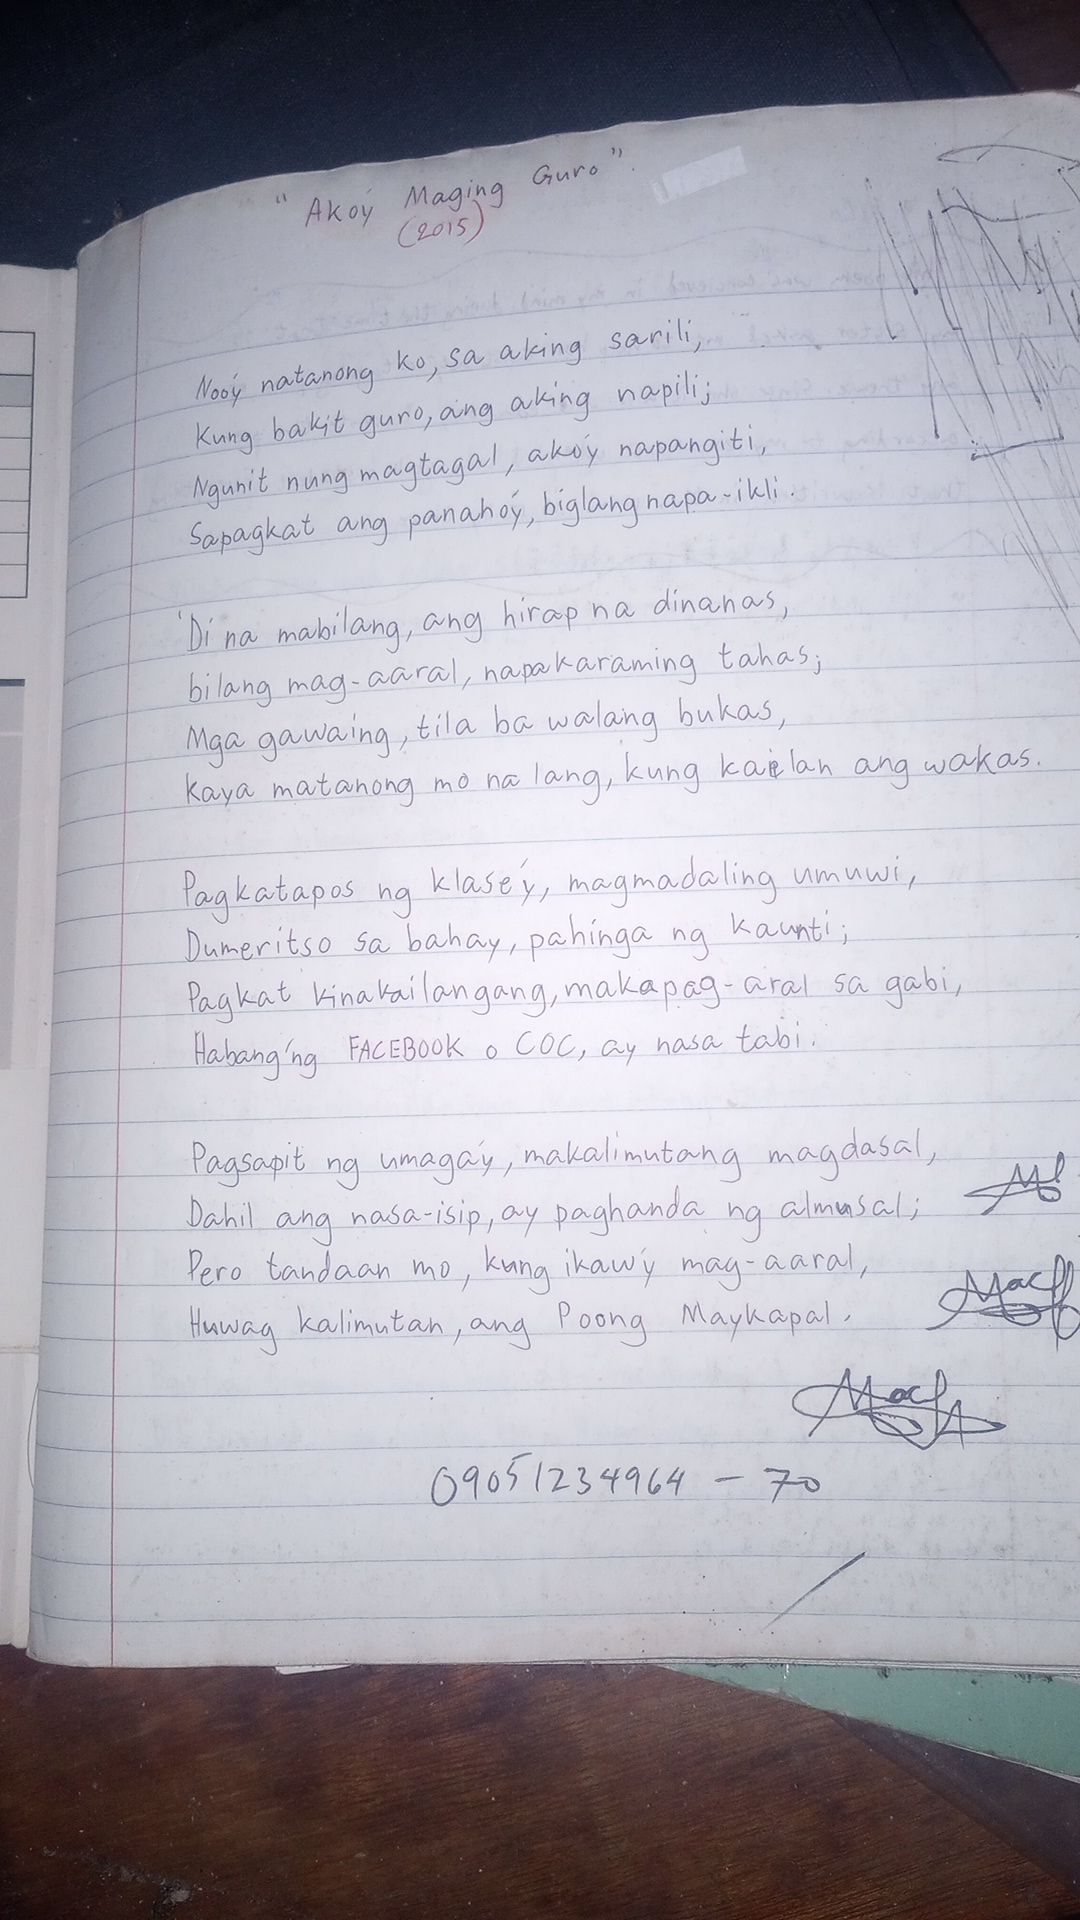 "Akoý Maging Guro".
(2015)
Nooý natanong ko, sa aking sarili,
Kung bakit guro, ang aking napili;
Ngunit nung magtagal, akoý napangiti,
Sapagkat ang panahoý, biglang napa-ikli.
'Di na mabilang, ang hirap na dinanas,
bilang mag-aaral, napakaraming tahas;
Mga gawaing, tila ba walang bukas,
Kaya matanong mo na lang, kung kailan ang wakas.
Pagkatapos ng klase'y, magmadaling umuwi,
Dumeritso sa bahay, pahinga ng kaunti;
Pagkat kinakailangang, makapag-aral sa gabi,
Habang'ng FACEBOOK o COC, ay nasa tabi.
Pagsapit ng umagaý, makalimutang magdasal,
Dahil ang nasa-isip, ay paghanda ng almusal;
Pero tandaan mo, kung ikaw'y mag-aaral,
Huwag kalimutan, ang Poong Maykapal.
09051234964 - 70